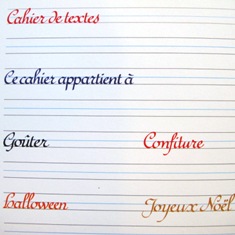 Cahier de textes
Ce cahier appartient à
Goûter
Confiture
Halloween
Joyeux Noël